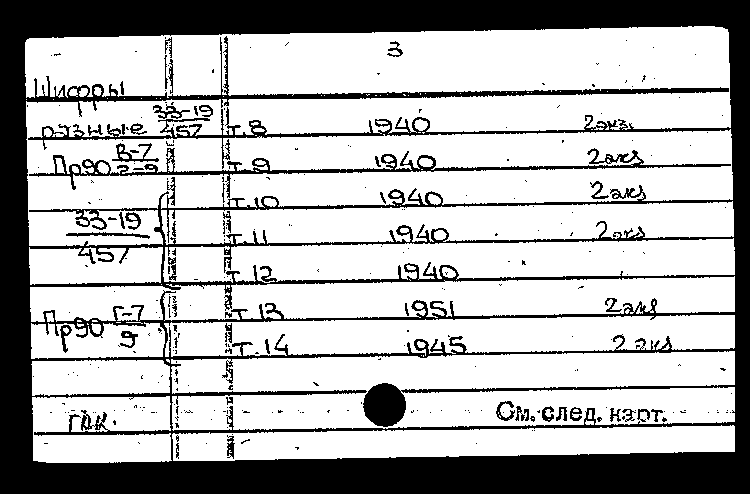 3
Шифры
разные 33-19/457 т.8 1940 2 экз.
Пр90 В-7/ т.9 1940 2 экз
т.10 1940 2 экз
33-19/457 т.11 1940 2 экз
т.12 1940
Пр90 Г-7/9 т.13 1951 2 экз
т.14 1945 2 экз
См. след. карт.